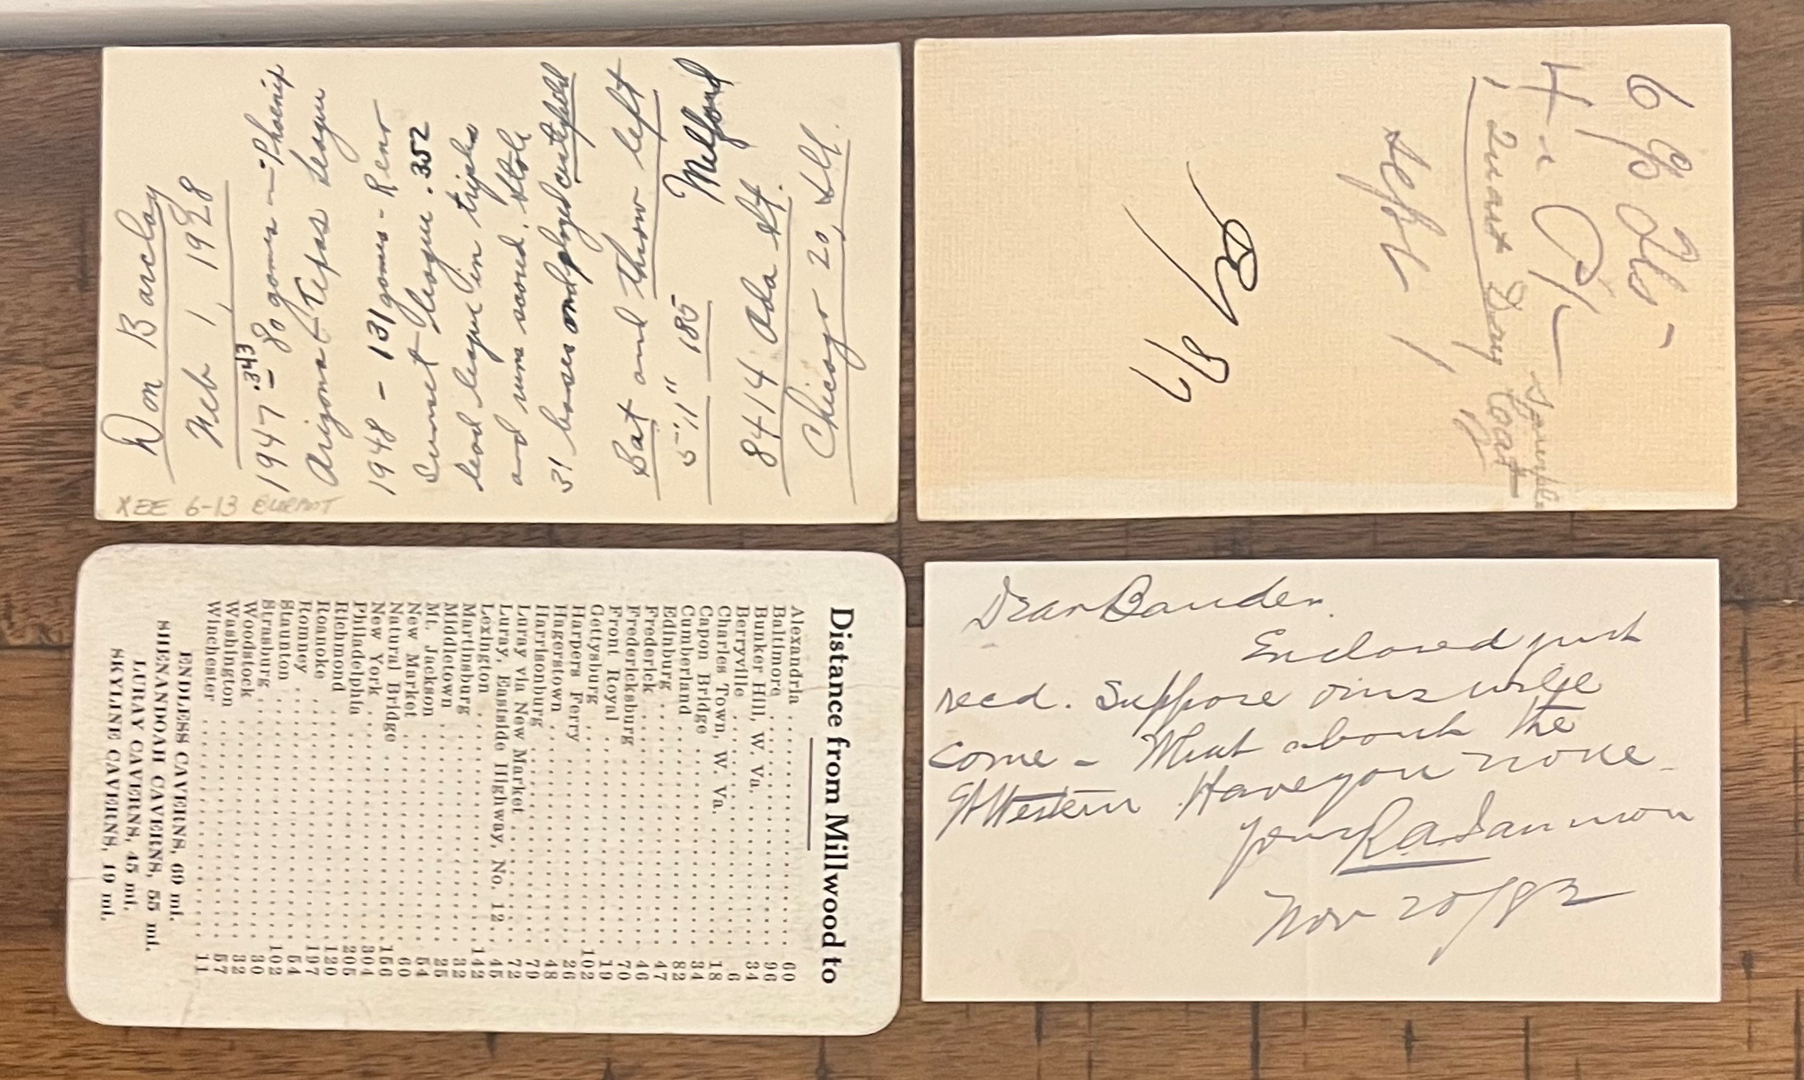 Don Barclay
Feb 1, 1928
1947 - .343 80 games in Phoenix
Arizona-Texas league
1948 - 131 games - Reno
Sunset league .352
lead league in triples
and runs scored. Stole
31 bases and played centerfield
Bat and throw left
5'11" 185 Milford
8414 Ada St.
Chicago 20, Ill.
6-13
Left
Distance from Millwood to
Alexandria 60
Baltimore 96
Bunker Hill, W. Va. 34
Berryville 6
Charles Town, W. Va. 18
Capon Bridge 34
Cumberland 82
Edinburg 47
Frederick 46
Fredericksburg 70
Front Royal 19
Gettysburg 102
Harpers Ferry 26
Hagerstown 48
Harrisonburg 79
Luray via New Market 72
Luray, Eastside Highway, No. 12 45
Lexington 142
Martinsburg 32
Middletown 25
Mt. Jackson 54
New Market 60
Natural Bridge 156
New York 304
Philadelphia 205
Richmond 120
Roanoke 197
Romney 54
Staunton 102
Strasburg 30
Woodstock 32
Washington 57
Winchester 11
ENDLESS CAVERNS, 69 mi.
SHENANDOAH CAVERNS, 55 mi.
LURAY CAVERNS, 45 mi.
SKYLINE CAVERNS, 19 mi.
Dear
Enclosed just
recd. Suppose ours will
come - What about the
Western Have you none
Yours
Nov 20/82